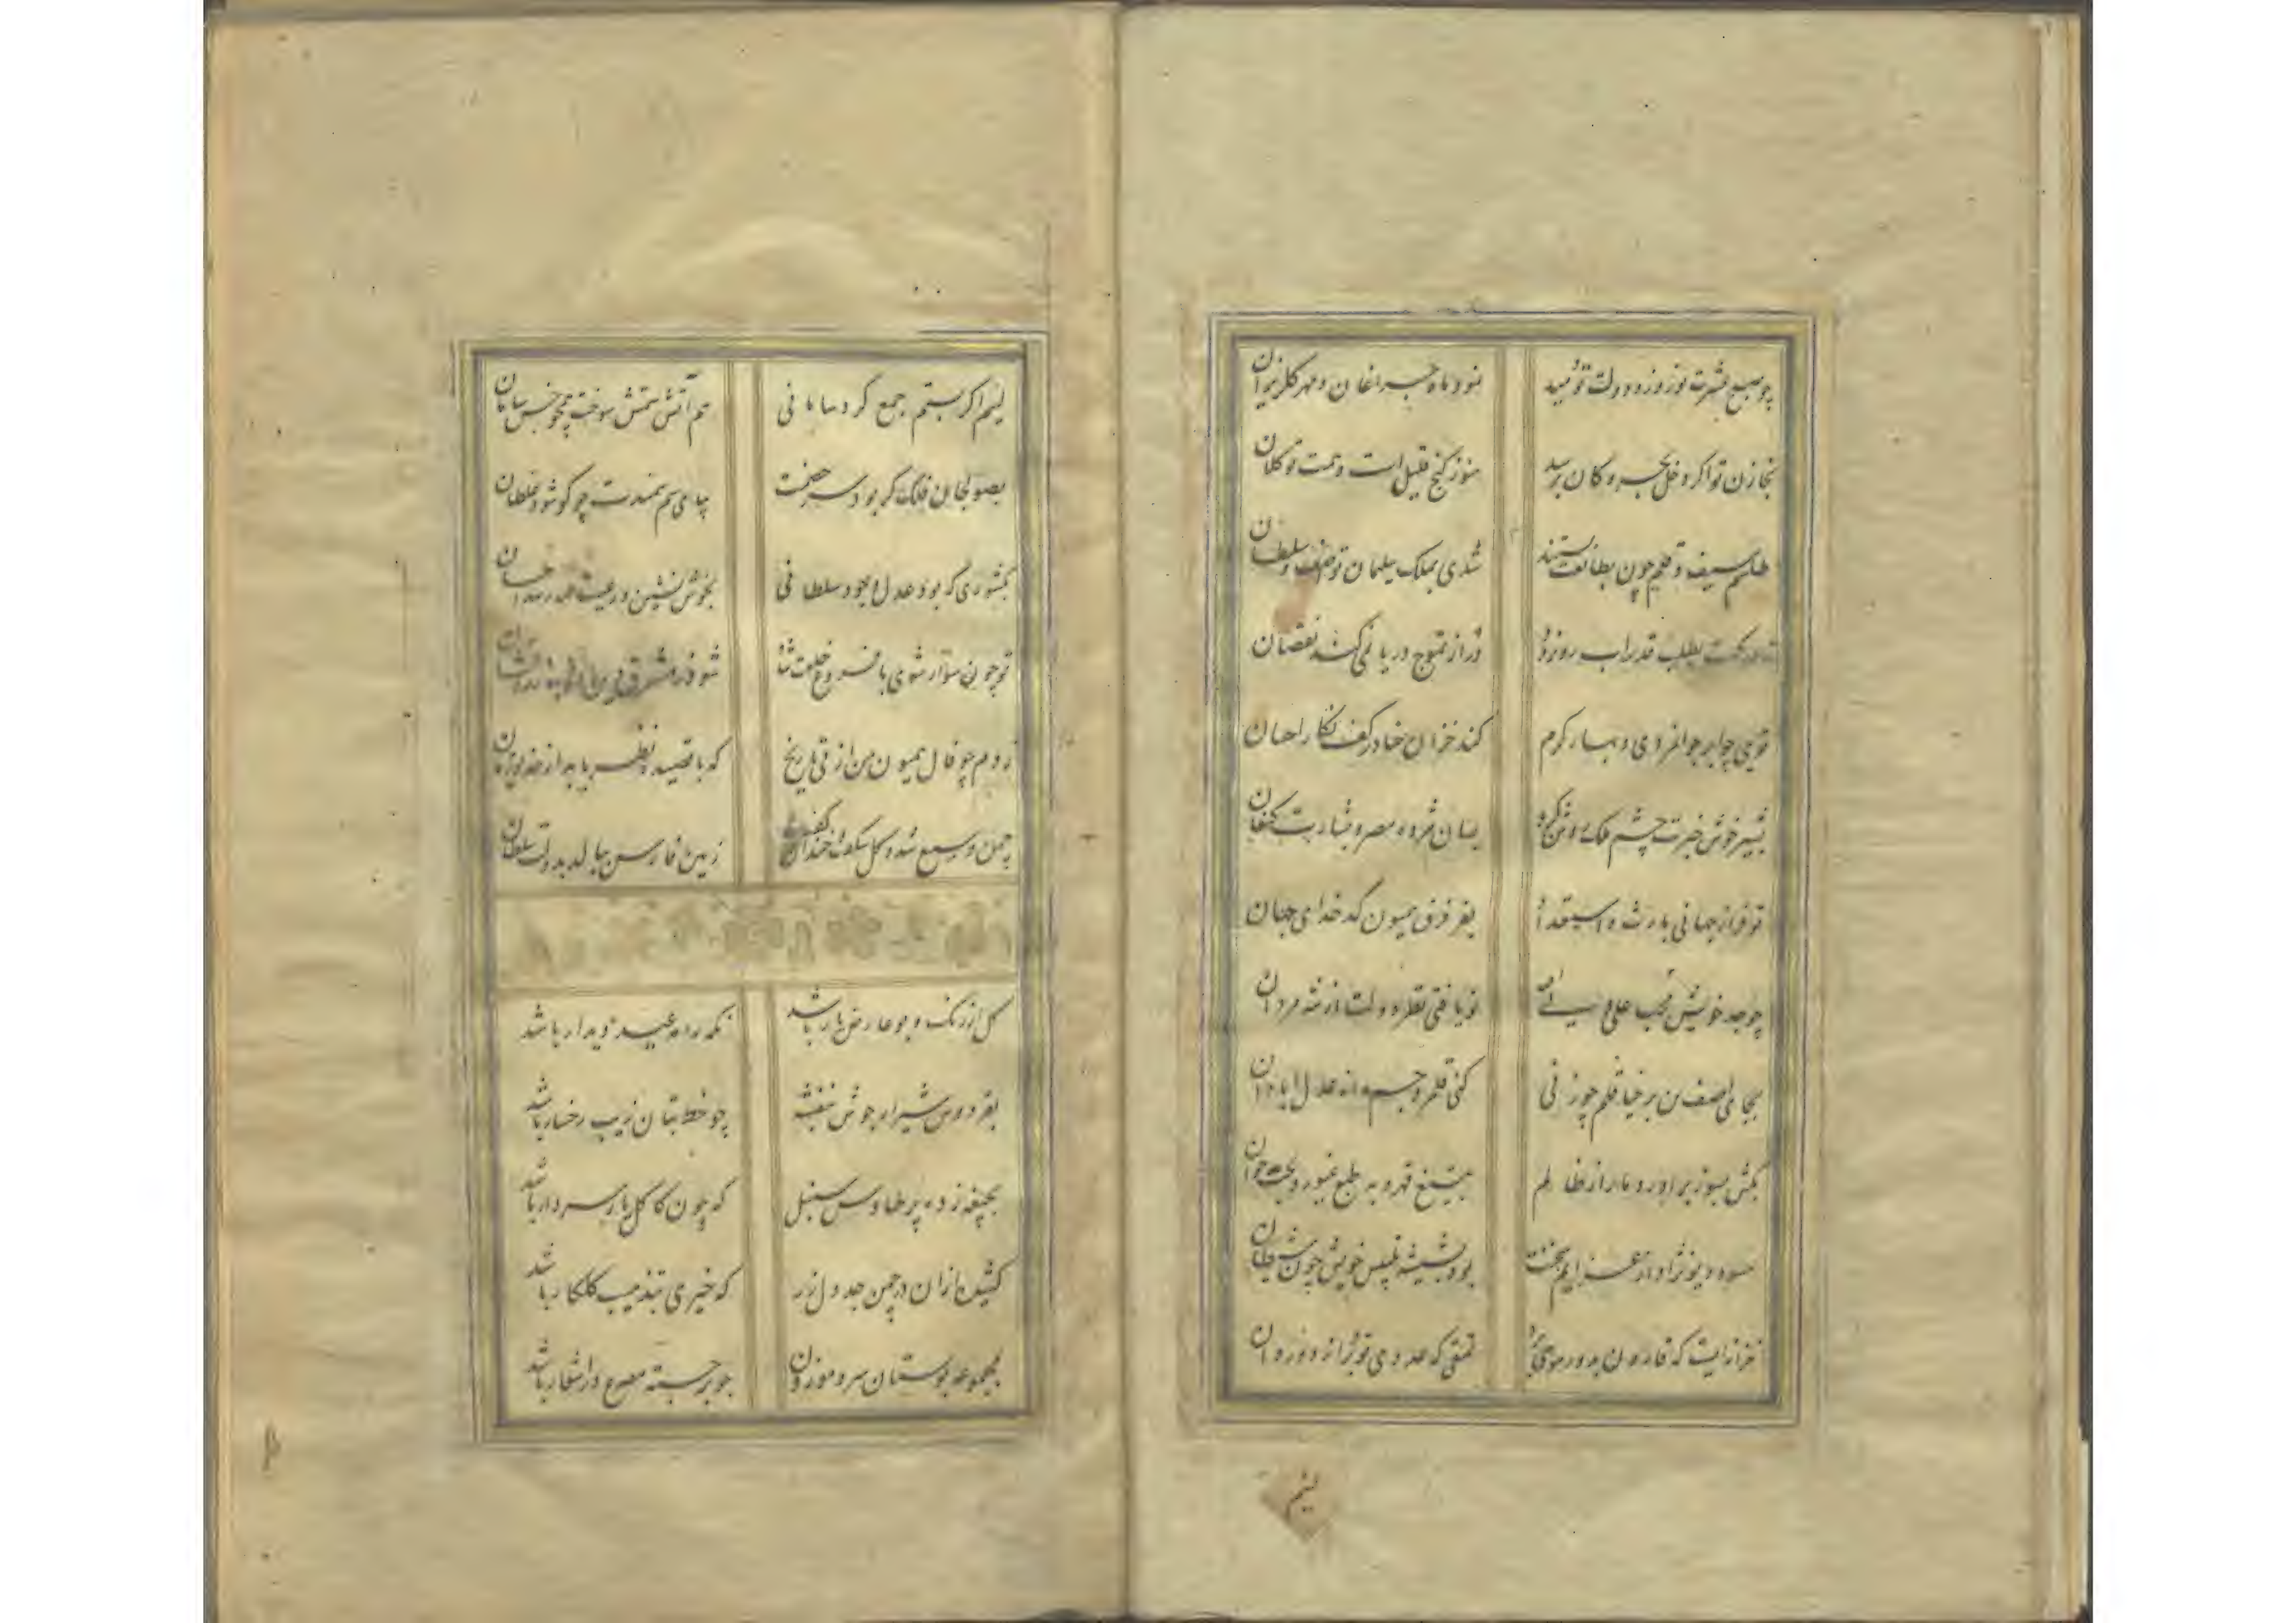 چو صبح عشرت نوروز دولت تو دمید نمود ماه چراغان و مهر گلریزان
بخازن تو اگر دخل بحر و کان برسد هنوز گنج قلیل است و همت تو کلان
طلسم سیف و قلم چون بطالعت بستند شدی بملک سلیمان تو آصف و سلطان
قدر آب در از تموج دریا نمی‌کشد نقصان
تویی چو ابر جوانمردی و بهار کرم کند خزان حنا در کف نگار احسان
بشیر خوش خبرت چشم ملک روشن کرد بسان مژده مصر و بشارت کنعان
تو فراز جهانی بارث و استعداد بفر فرق همیون کدخدای جهان
چو جد خویش محب علی تو یافتی نظر دولت از شه مردان
بجای آصف بن برخیا قلم چو زنی کنی قلمرو جم را ز عدل آبادان
بکش بسوز برآور دمار از ظالم بتیغ قهر و به طبع غیور و بخت جوان
حسود دیو نژاد از عزایم سخنت بود بشیشه تلبیس خویش چون شیطان
خزانه‌ایست که قارون بدور موسی
لئیم
لئیم اگر بستم جمع کرد سامانی هم آتش ستمش سوخت همچو خس سامان
بصولجان فلک گر بود سر خصمت بپای سم سمندت چو گو شود غلطان
بکشوری که بود عدل و جود سلطانی بخوش نشین و رعیت همه رسد احسان
تو چون سوار شوی با فروغ خلعت شاه شود ز مشرق زین
زدم چو فال همیون من از پی تاریخ که با قصیده نظر یابد از خدیو زمان
چمن وسیع شد و گل شکفت و خندان گفت زمین فارس ببالد بدولت سلطان
گل از رنگ و بو عارض یار باشد نگه را مه عید دیدار باشد
بفردوس شیراز جوش بنفشه چو خط بتان زیب رخسار باشد
بجیغه زده پر طاوس سنبل که چون کاکل یار سردار باشد
کشیده خزان در چمن جدول زر که خیری بتذهیب گلکار باشد
بمجموعه بوستان سرو موزون چو برجسته مصرع در اشعار باشد